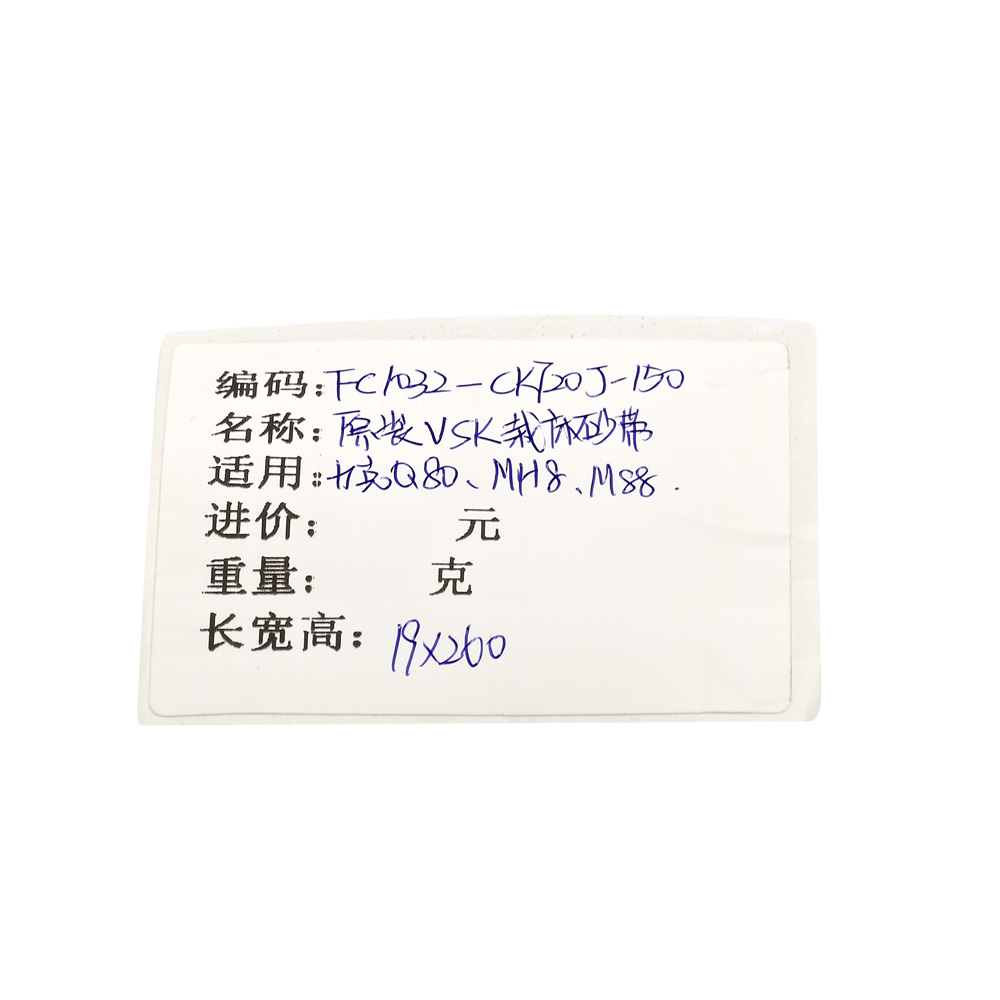 编码:FC1032-CK720J-150
名称:原装VSK裁床砂带
适用:力克Q80、MH8、M88.
进价: 元
重量: 克
长宽高:19X260